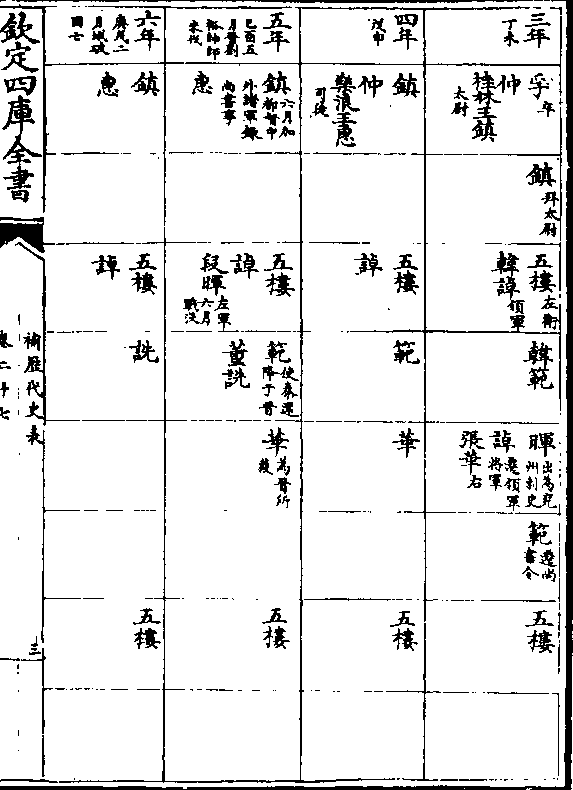 三年
丁未
孚卒
仲
桂林王鎮
太尉
鎮拜太尉
五樓左衛
韓𧨳領軍
韓範
暉出為兗
州刺史
𧨳遷領軍
將軍
張華右
範遷尚
書令
五樓
四年
戊申
鎮
仲
樂浪王惠
司徒
五樓
𧨳
範
華
五樓
五年
己酉五
月晉劉
裕帥師
來伐
鎮六月加
都督中
外諸軍錄
尚書事
惠
五樓
𧨳
段暉左軍
六月
戰沒
範使秦還
降于晉
董詵
華為晉所
獲
五樓
六年
庚戌二
月城破
國亡
鎮
惠
五樓
𧨳
詵
五樓
欽定四庫全書
補歷代史表
卷二十七
三